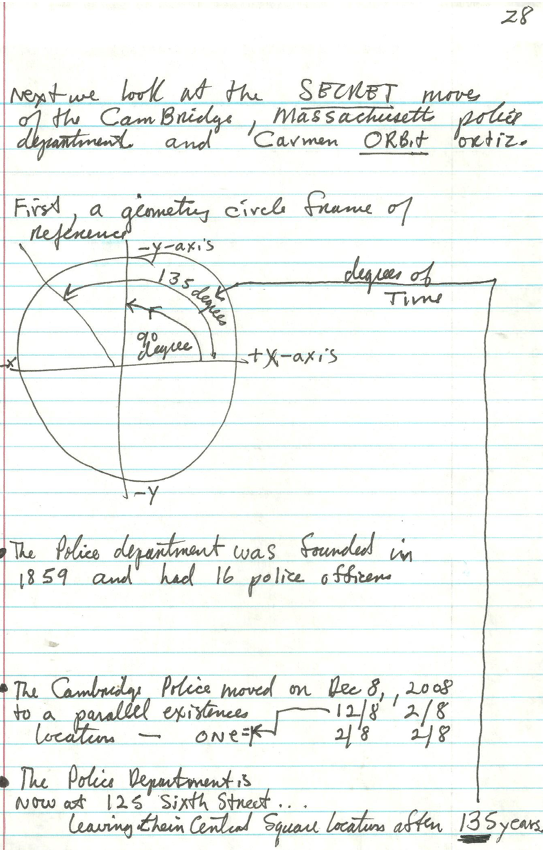 28
Next we look at the SECRET moves
of the CamBridge, Massachusett police
department and Carmen ORBit ortiz.
First, a geometry circle frame of
reference
-y-axis
135 degrees
degrees of
Time
90
degree
+X-axis
-X
-Y
• The Police department was founded in
1859 and had 16 police officers
• The Cambridge Police moved on Dec 8, 2008
to a parallel existences 12/8 2/8
location — ONE=K 2/8 2/8
• The Police Department is
Now at 125 Sixth Street...
leaving their Central Square location after 135 years.